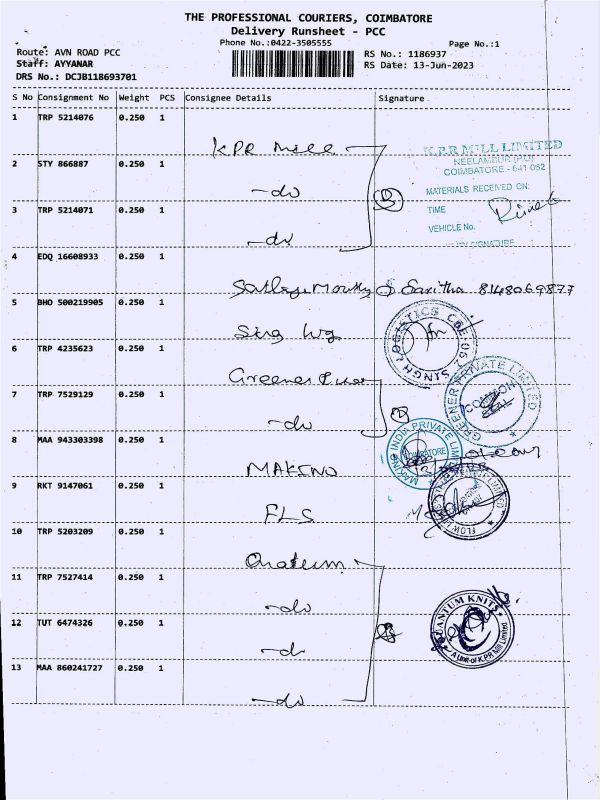 THE PROFESSIONAL COURIERS, COIMBATORE
Delivery Runsheet - PCC
Phone No.:0422-3505555
Page No.:1
Route: AVN ROAD PCC
RS No.: 1186937
Staff: AYYANAR
RS Date: 13-Jun-2023
DRS No.: DCJB118693701
S No Consignment No Weight PCS Consignee Details Signature
1 TRP 5214076 0.250 1
KPR Mill
K.P.R MILL LIMITED
NEELAMBUR (P.O)
COIMBATORE - 641 062
2 STY 866887 0.250 1
-do
MATERIALS RECEIVED ON:
3 TRP 5214071 0.250 1
TIME
VEHICLE No.
-do
4 EDQ 16608933 0.250 1
Saritha 8148069877
5 BHO 500219905 0.250 1
SINGH LOGISTICS
6 TRP 4235623 0.250 1
GREENER PRIVATE LIMITED
COMMON SEAL
7 TRP 7529129 0.250 1
-do
8 MAA 943303398 0.250 1
MAKINO
MAKINO INDIA PRIVATE LIM
COIMBATORE
9 RKT 9147061 0.250 1
FLS
10 TRP 5203209 0.250 1
11 TRP 7527414 0.250 1
-do
12 TUT 6474326 0.250 1
-do
QUANTUM KNITS
A Unit of K.P.R Mill Limited
13 MAA 860241727 0.250 1
-do